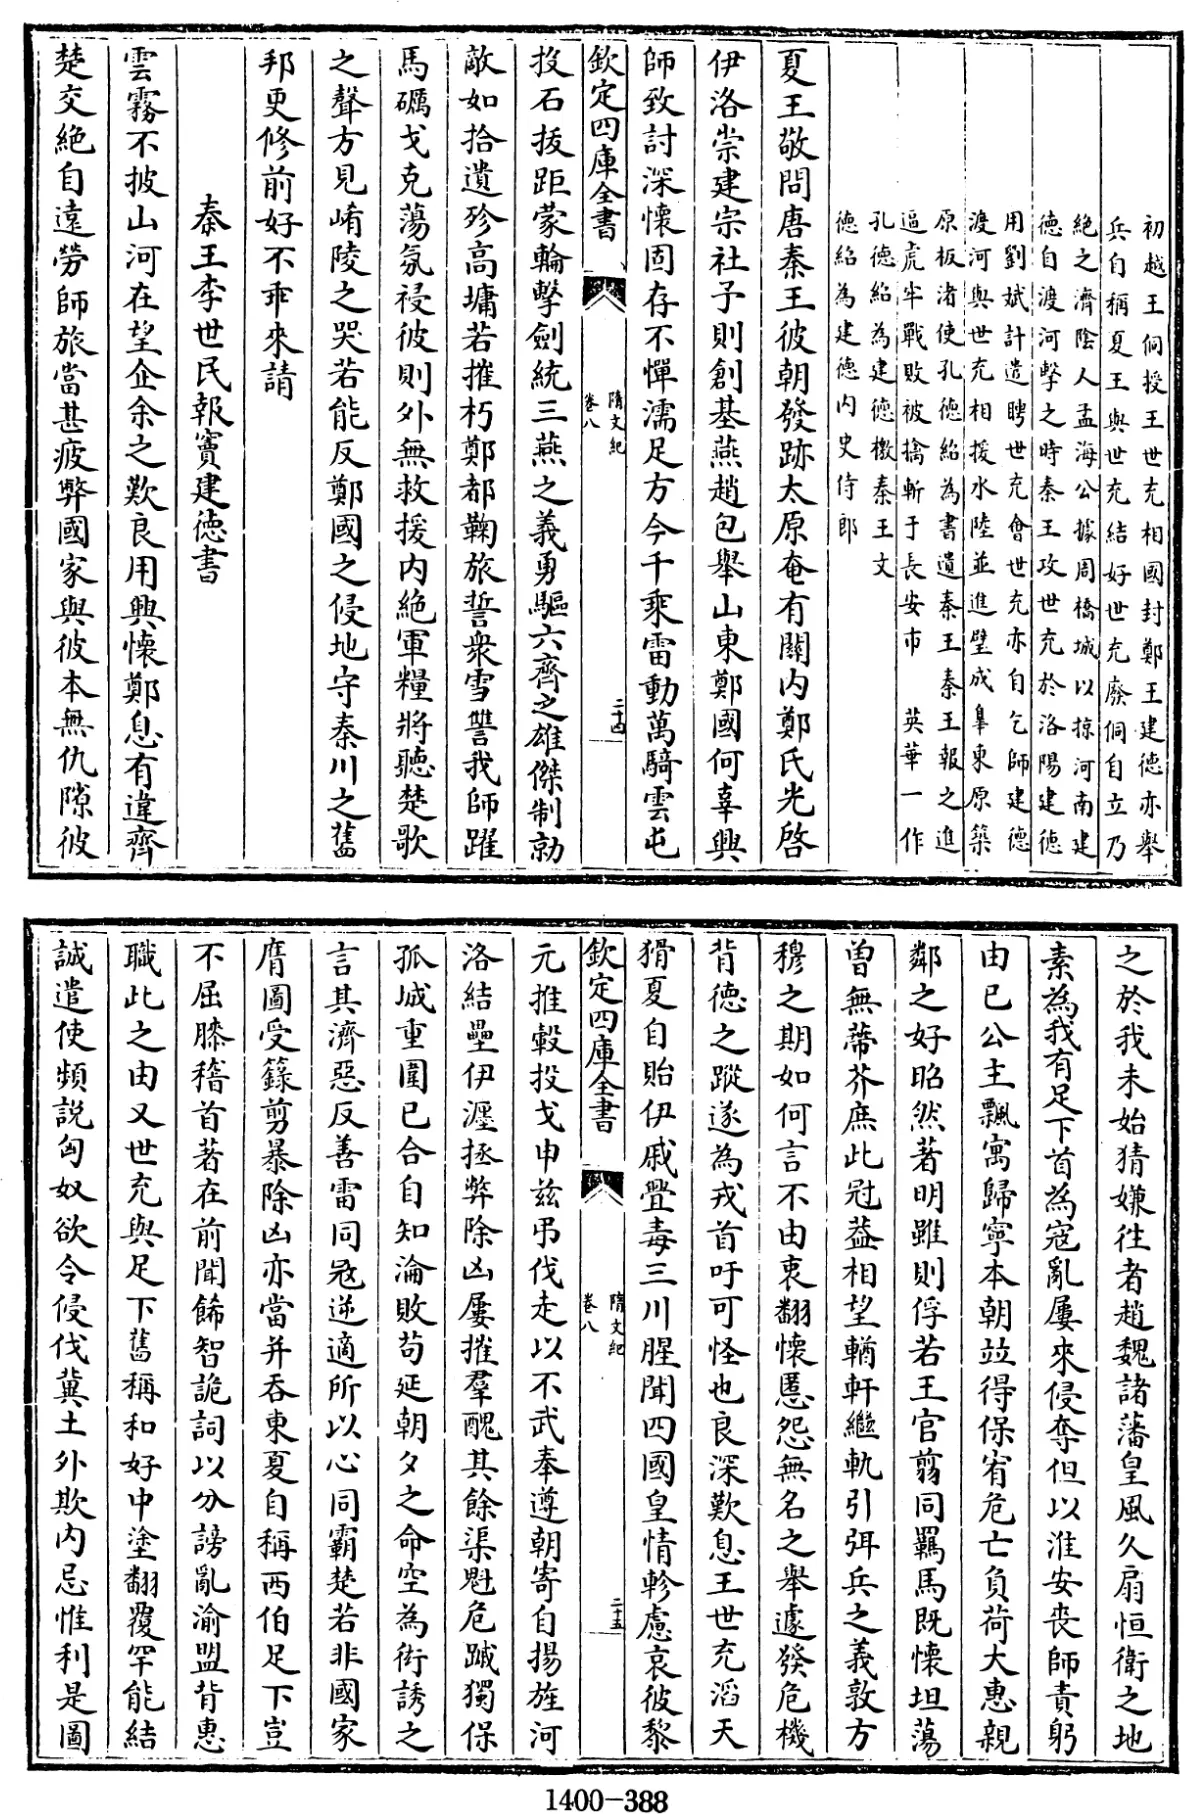 初越王侗授王世充相國封鄭王建德亦舉
兵自稱夏王與世充結好世充廢侗自立乃
絶之濟陰人孟海公據周橋城以掠河南建
德自渡河擊之時秦王攻世充於洛陽建德
用劉斌計遣聘世充會世充亦自乞師建德
渡河與世充相援水陸並進壁成臯東原築
原板渚使孔德紹為書遺秦王秦王報之進
逼虎牢戰敗被擒斬于長安市　英華一作
孔德紹為建德檄秦王文
德紹為建德内史侍郎
夏王敬問唐秦王彼朝發跡太原奄有關内鄭氏光啓
伊洛崇建宗社予則創基燕趙包舉山東鄭國何辜興
師致討深懷固存不憚濡足方今千乘雷動萬騎雲屯
欽定四庫全書
隋文紀
卷八
二十四
投石拔距蒙輪擊劍統三燕之義勇驅六齊之雄傑制勍
敵如拾遺殄高墉若摧朽鄭都鞠旅誓衆雪讐我師躍
馬礪戈克蕩氛祲彼則外無救援内絶軍糧將聽楚歌
之聲方見崤陵之哭若能反鄭國之侵地守秦川之舊
邦更修前好不乖來請
秦王李世民報竇建德書
雲霧不披山河在望企余之歎良用興懷鄭息有違齊
楚交絶自遠勞師旅當甚疲弊國家與彼本無仇隙彼
之於我未始猜嫌徃者趙魏諸藩皇風久扇恒衛之地
素為我有足下首為宼亂屢來侵奪但以淮安喪師責躬
由已公主飄寓歸寧本朝竝得保宥危亡負荷大惠親
鄰之好昭然著明雖則俘若王官翦同羈馬既懷坦蕩
曽無蔕芥庶此冠葢相望輶軒繼軌引弭兵之義敦方
穆之期如何言不由衷翻懷慝怨無名之舉遽發危機
背德之蹤遂為戎首吁可怪也良深歎息王世充滔天
猾夏自貽伊戚舋毒三川腥聞四國皇情軫慮哀彼黎
欽定四庫全書
隋文紀
卷八
二十五
元推轂投戈申兹弔伐走以不武奉遵朝寄自揚旌河
洛結壘伊瀍拯弊除凶屢摧羣醜其餘渠魁危蹙獨保
孤城重圍已合自知淪敗苟延朝夕之命空為衒誘之
言其濟惡反善雷同冦逆適所以心同霸楚若非國家
膺圖受籙剪暴除凶亦當并呑東夏自稱西伯足下豈
不屈膝稽首著在前聞餙智詭詞以分謗亂渝盟背惠
職此之由又世充與足下舊稱和好中塗翻覆罕能結
誠遣使頻説匈奴欲令侵伐冀土外欺内忌惟利是圖
1400-388